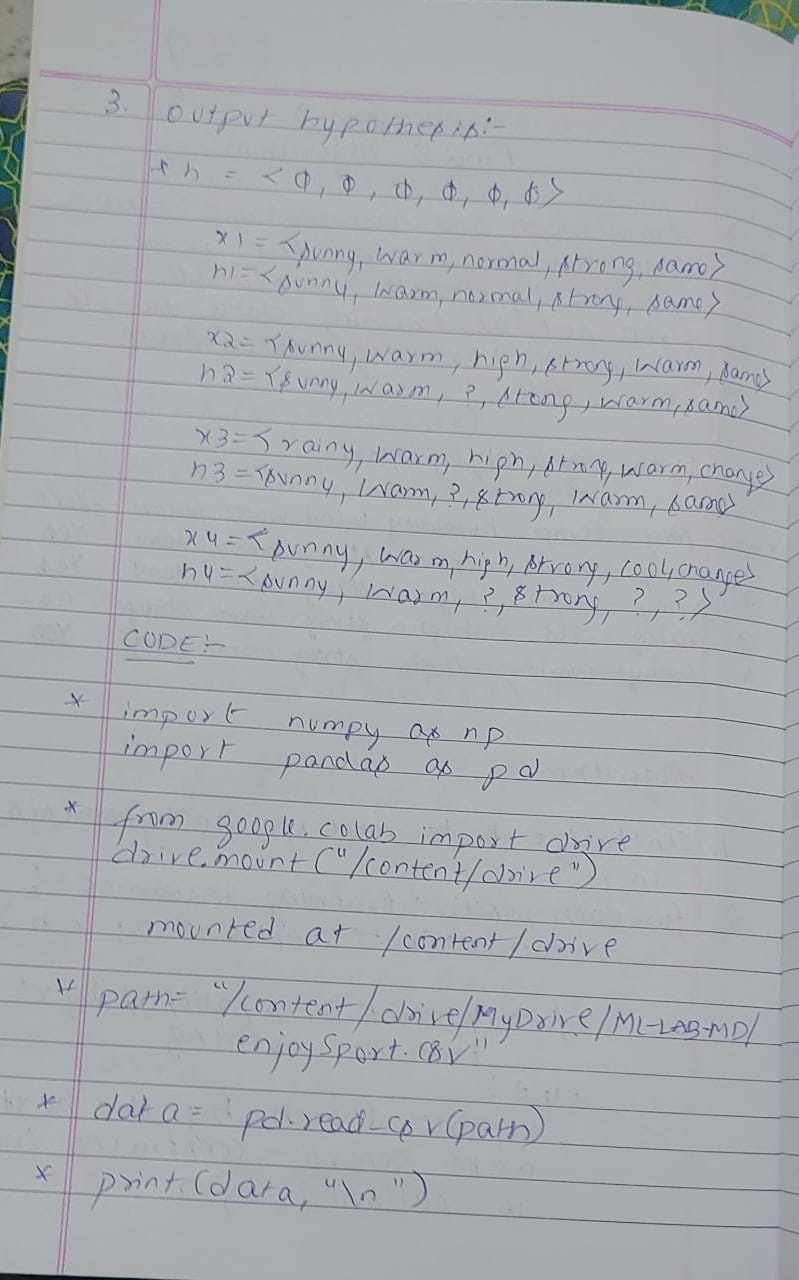 3. output hypothesis:-
* h = <ϕ, ϕ, ϕ, ϕ, ϕ, ϕ>
x1 = <sunny, warm, normal, strong, same>
h1 = <sunny, warm, normal, strong, same>
x2 = <sunny, warm, high, strong, warm, same>
h2 = <sunny, warm, ?, strong, warm, same>
x3 = <rainy, warm, high, strong, warm, change>
h3 = <sunny, warm, ?, strong, warm, same>
x4 = <sunny, warm, high, strong, cool, change>
h4 = <sunny, warm, ?, strong, ?, ?>
CODE:-
* import numpy as np
import pandas as pd
* from google.colab import drive
drive.mount("/content/drive")
mounted at /content/drive
* path= "/content/drive/MyDrive/ML-LAB-MD/
enjoySport.csv"
* data = pd.read_csv(path)
* print(data, "\n")